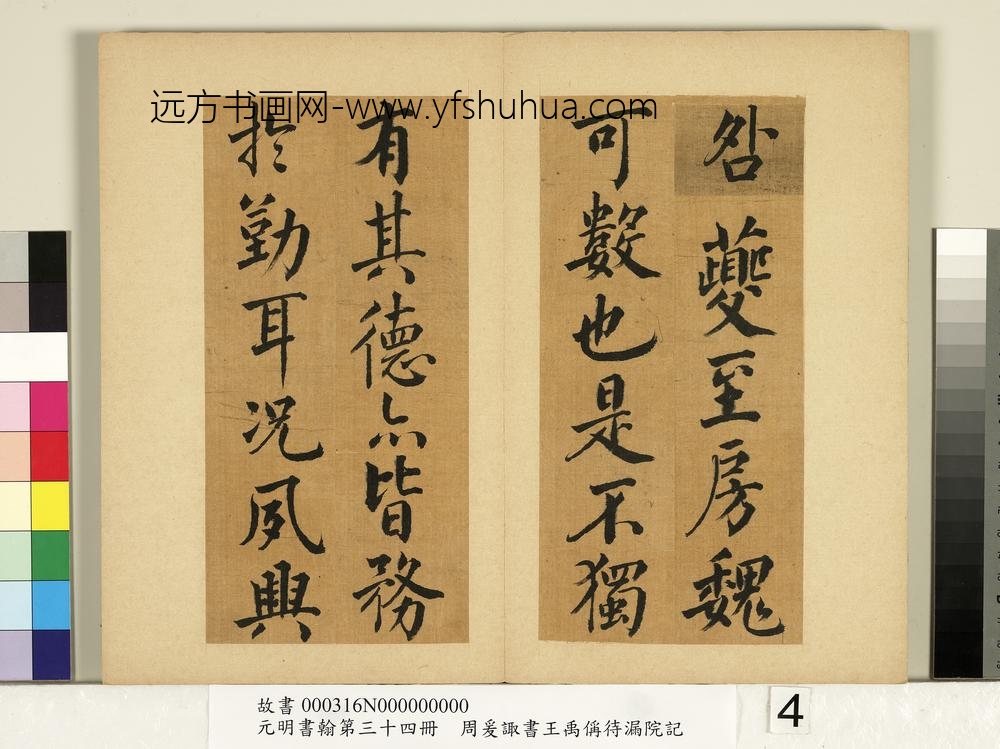 远方书画网-www.yfshuhua.com
咎夔至房魏
可數也是不獨
有其德亦皆務
於勤耳况夙興
故書 000316N000000000
元明書翰第三十四冊 周爰諏書王禹偁待漏院記
4